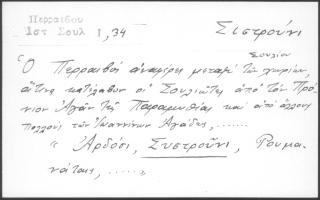 Περραιβου
Ιστ Σουλ 1, 34
Σιστρούνι
Σουλίου
Ὁ Περραιβός ἀναφέρει μεταξύ τῶν χωρίων,
ἅτινα κατέλαβον οἱ Σουλιῶται ἀπό τόν Πρό-
νιον Ἀγᾶν τῆς Παραμυθίας καί ἀπό ἄλλους
πολλούς τῶν Ἰωαννίνων Ἀγάδες, ......
" Ἀρδόσι, Συστροῦνι, Ρουμα-
νάταις, ......